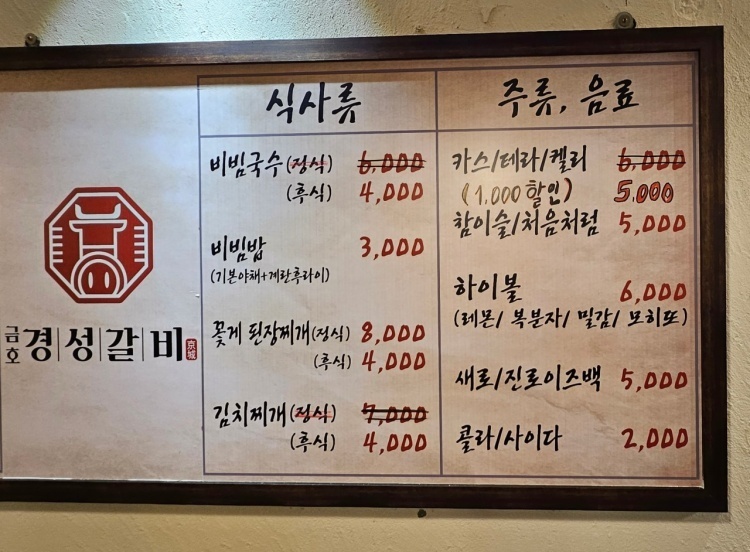 금호 경성갈비 京城
식사류
비빔국수(정식) 6,000
(후식) 4,000
비빔밥 3,000
(기본야채+계란후라이)
꽃게 된장찌개(정식) 8,000
(후식) 4,000
김치찌개(정식) 7,000
(후식) 4,000
주류, 음료
카스/테라/켈리 6,000
(1,000 할인) 5,000
참이슬/처음처럼 5,000
하이볼 6,000
(레몬/ 복분자/ 밀감/ 모히또)
새로/진로이즈백 5,000
콜라/사이다 2,000